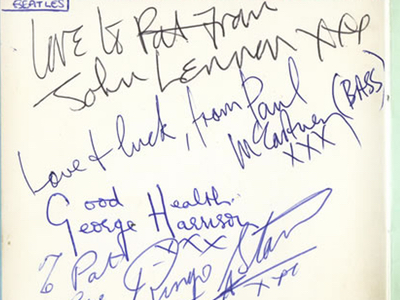 BEATLES
Love to Pat from
John Lennon xxx
Love & luck, from Paul
McCartney (BASS)
XXX
Good
Health
George Harrison
xxx
To Pat
Ringo Starr
xxx